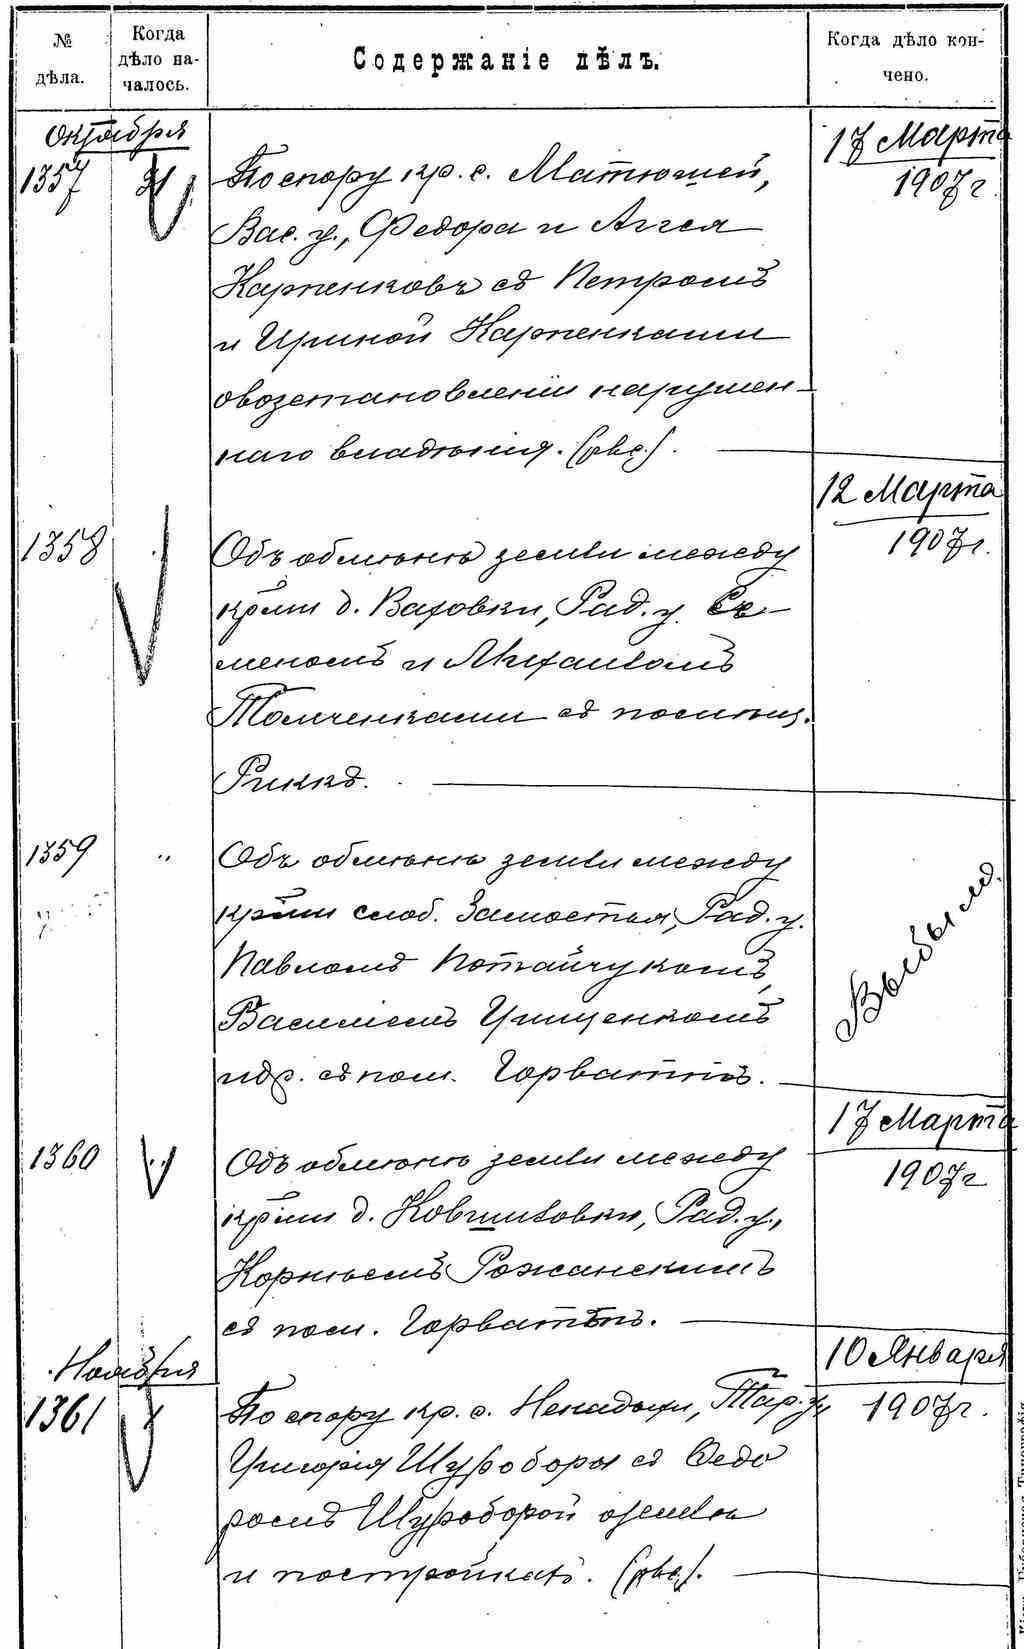 № дѣла.
Когда дѣло началось.
Содержаніе дѣлъ.
Когда дѣло кончено.
Октября
17 Марта
1907 г.
1357
31
По спору кр. с. Матюшей,
Вас. у., Федора и Аггея
Карпенковъ съ Петромъ
и Ириной Карпенками
о возстановленіи нарушен-
наго владѣнія.
12 Марта
1907 г.
1358
Объ обмѣнѣ земли между
кр-ми д. Ваховки, Рад. у. Се-
меномъ и Михаиломъ
Толченками съ помѣщ.
Рикка.
1359
"
Объ обмѣнѣ земли между
кр-ми слоб. Замостья, Рад. у.
Павломъ Потайчукомъ,
Василіемъ Грищенкомъ
и др. съ пом. Горваттъ.
Выбыло.
17 Марта
1907 г
1360
"
Объ обмѣнѣ земли между
кр-ми д. Ковшиловки, Рад. у.,
Корнѣемъ Рожанскимъ
съ пом. Горваттъ.
Ноября
10 Января
1907 г.
1361
1
По спору кр. с. Ненадыхи, Тар. у,
Григорія Шуробory съ Ѳедо
ромъ Шуроборой о землѣ
и постройкахъ.